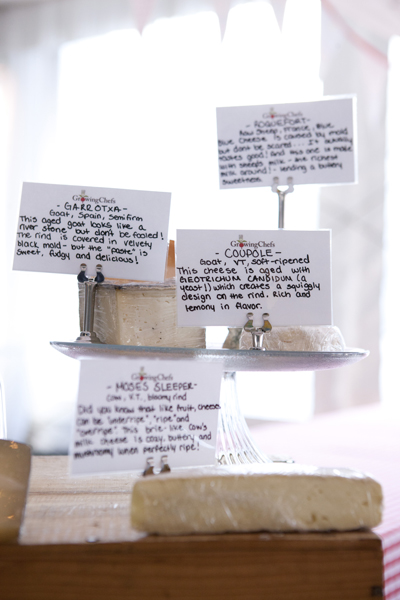 GrowingChefs
- ROQUEFORT -
Raw Sheep, France, Blue
Blue cheese is caused by mold
but dont be scared... It actually
makes good! and this one is made
with sheeps milk - the richest
milk around! - lending a buttery
sweetness
GrowingChefs
- GARROTXA -
Goat, Spain, Semifirm
This aged goat looks like a
river stone but dont be fooled!
The rind is covered in velvety
black mold - but the "paste" is
sweet, fudgy and delicious!
GrowingChefs
- COUPOLE -
Goat, VT, soft-ripened
This cheese is aged with
GEOTRICHUM CANDIDUM (a
yeast!) which creates a squiggly
design on the rind. Rich and
lemony in flavor.
GrowingChefs
- MOSES SLEEPER -
Cow, V.T., bloomy rind
Did you know that like fruit, cheese
can be "underripe", "ripe" and
"overripe". This brie-like cow's
milk cheese is cozy, buttery and
mushroomy when perfectly ripe!